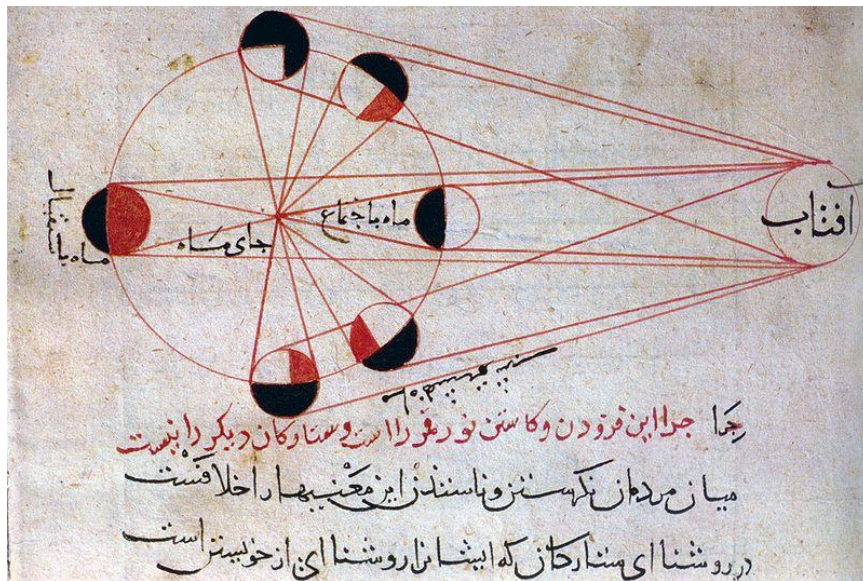 افتاب
ماه باجتماع
جای ماه
ماه باستقبال
ماه
جرا جرا این فزودن و کاستن نور قمر را است و ستارکان دیکر را نیست
میان مردمان نکرستن و این معنیها را خلافست
در روشنا ای ستارکان که ایشانرا روشنا ای از خویشتن است